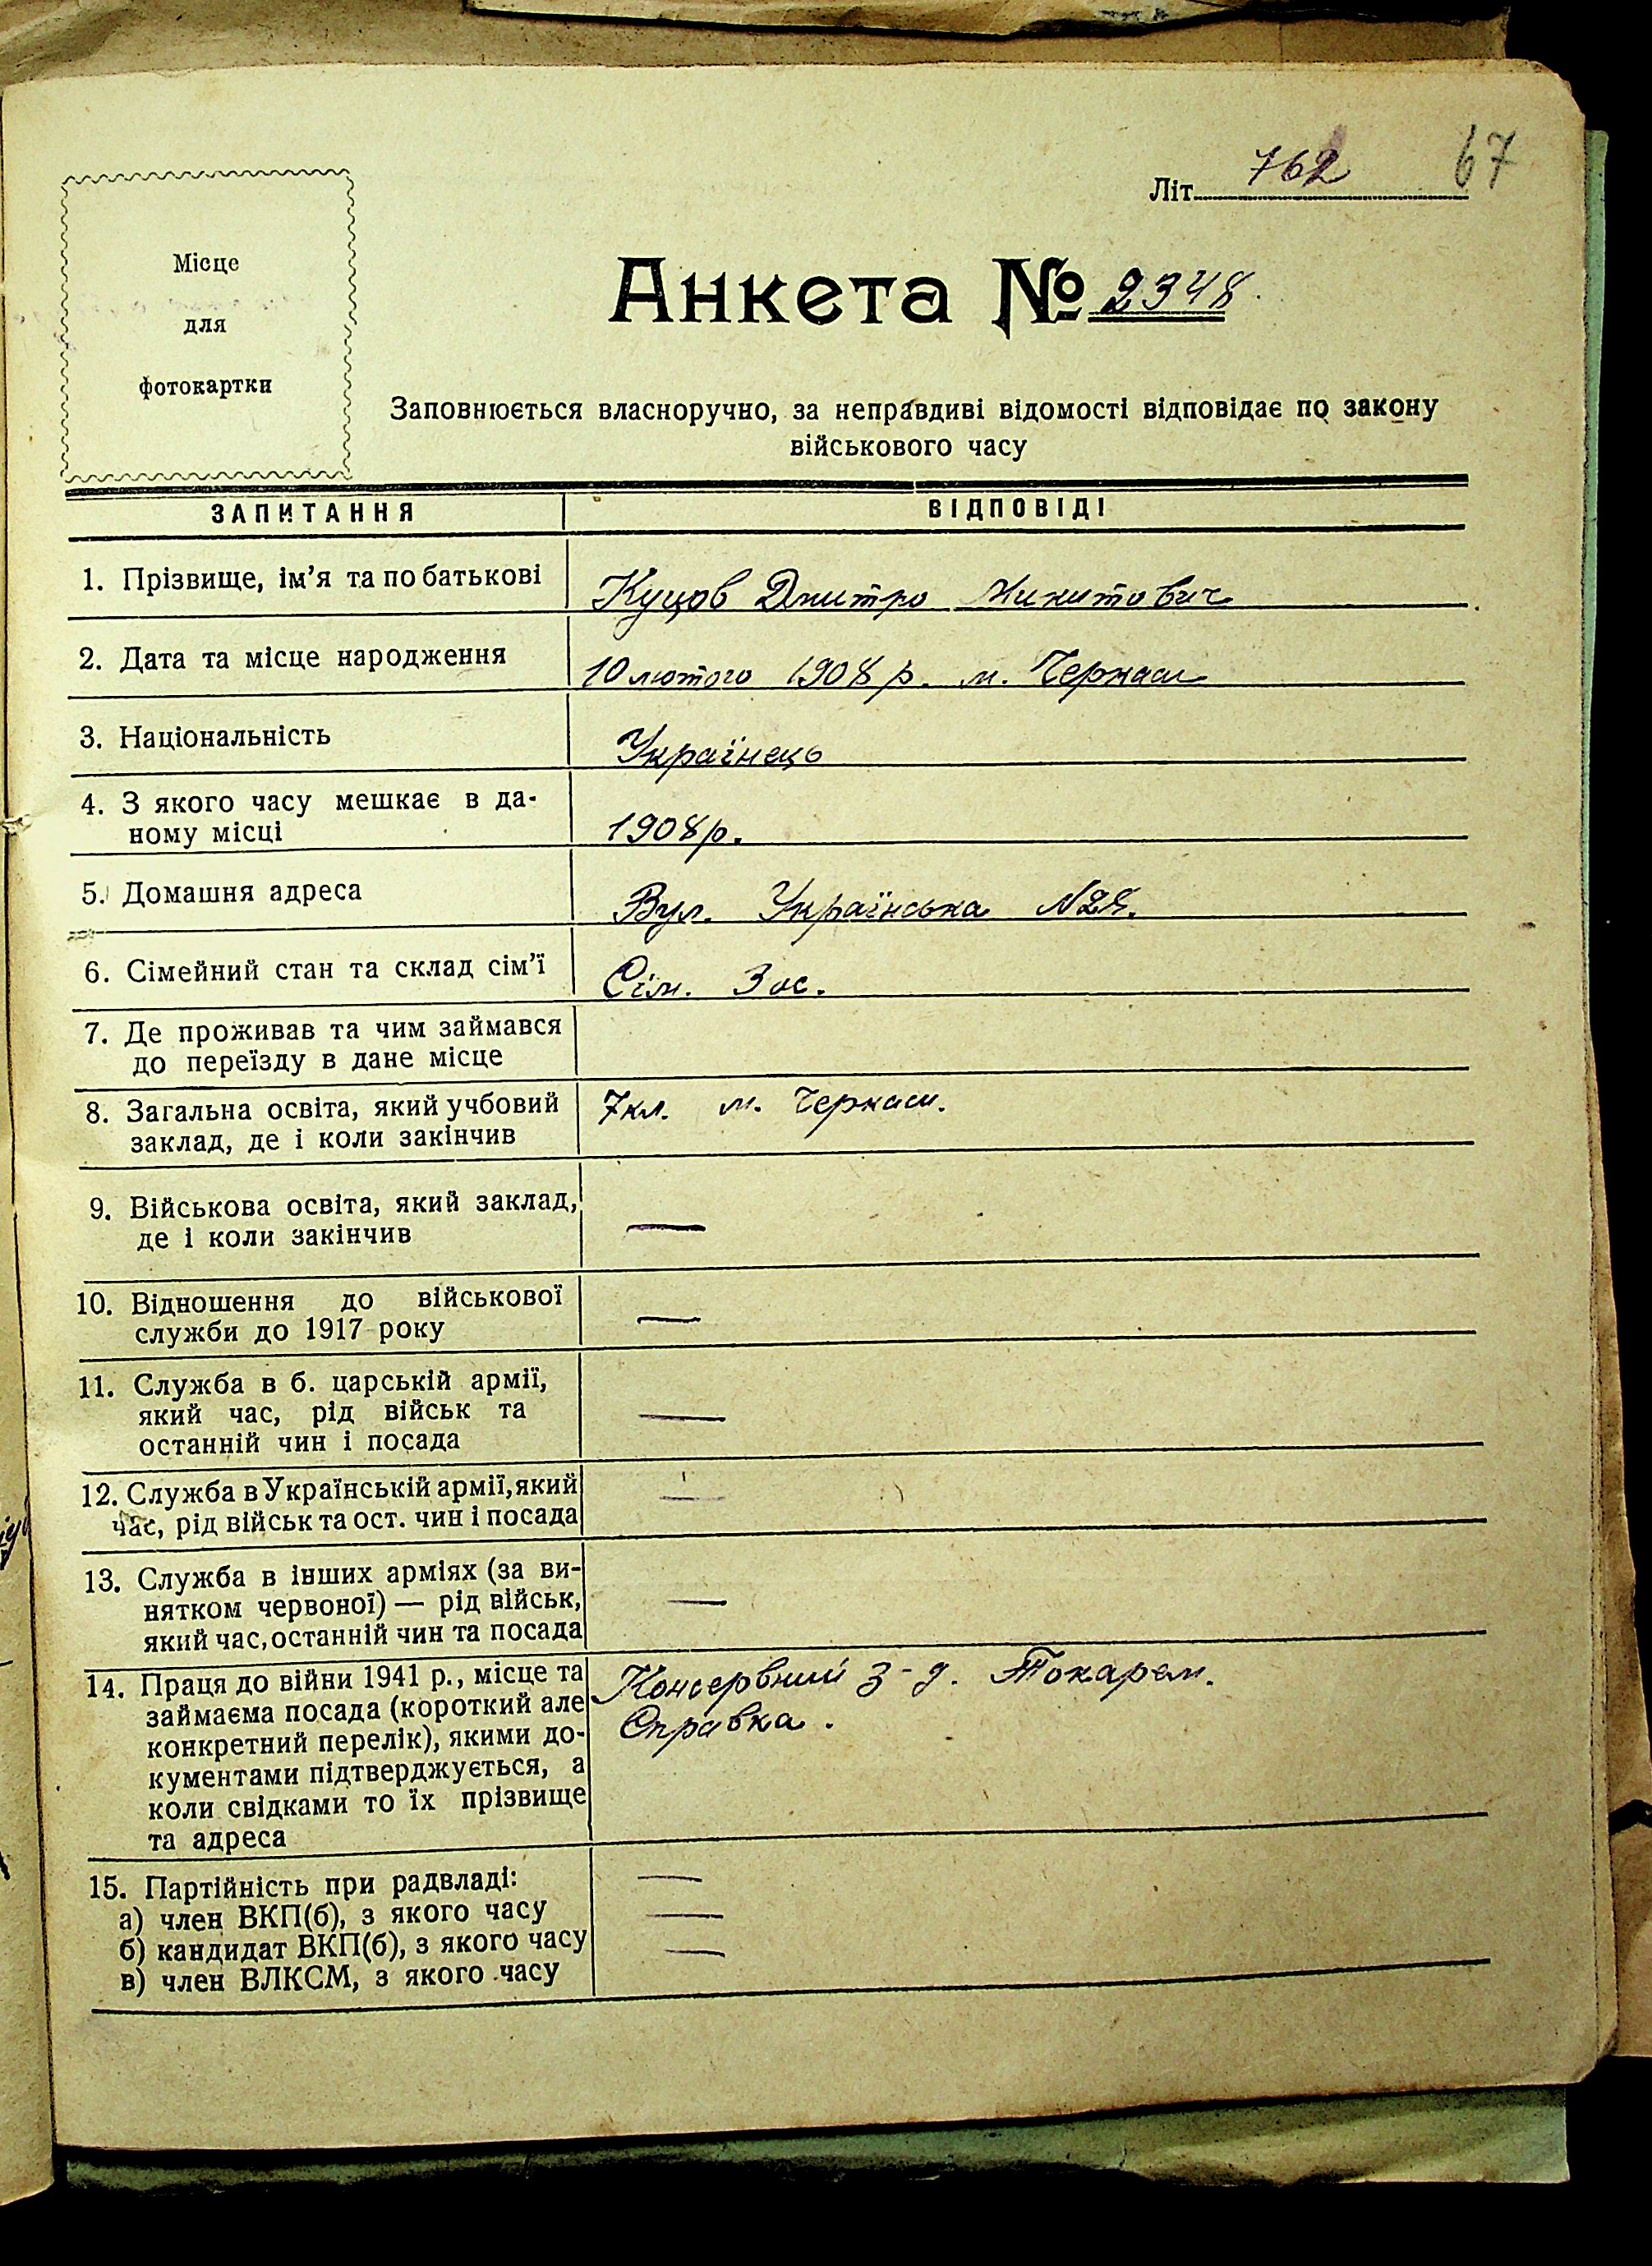 762
67
Літ
Місце
для
фотокартки
Анкета № 2348.
Заповнюється власноручно, за неправдиві відомості відповідає по закону
військового часу
ЗАПИТАННЯ
ВІДПОВІДІ
1. Прізвище, ім’я та по батькові
Куцов Дмитро Микитович
2. Дата та місце народження
10 лютого 1908 р. м. Черкаси
3. Національність
Українець
4. З якого часу мешкає в да-
ному місці
1908 р.
5. Домашня адреса
Вул. Українська
6. Сімейний стан та склад сім’ї
Сім. 3 ос.
7. Де проживав та чим займався
до переїзду в дане місце
8. Загальна освіта, який учбовий
заклад, де і коли закінчив
7 кл. м. Черкаси.
9. Військова освіта, який заклад,
де і коли закінчив
—
10. Відношення до військової
служби до 1917 року
—
11. Служба в б. царській армії,
який час, рід військ та
останній чин і посада
—
12. Служба в Українській армії, який
час, рід військ та ост. чин і посада
—
13. Служба в інших арміях (за ви-
нятком червоної) — рід військ,
який час, останній чин та посада
—
14. Праця до війни 1941 р., місце та
займаєма посада (короткий але
конкретний перелік), якими до-
кументами підтверджується, а
коли свідками то їх прізвище
та адреса
Консервний з-д. Токарем.
Справка.
15. Партійність при радвладі:
а) член ВКП(б), з якого часу
б) кандидат ВКП(б), з якого часу
в) член ВЛКСМ, з якого часу
—
—
—